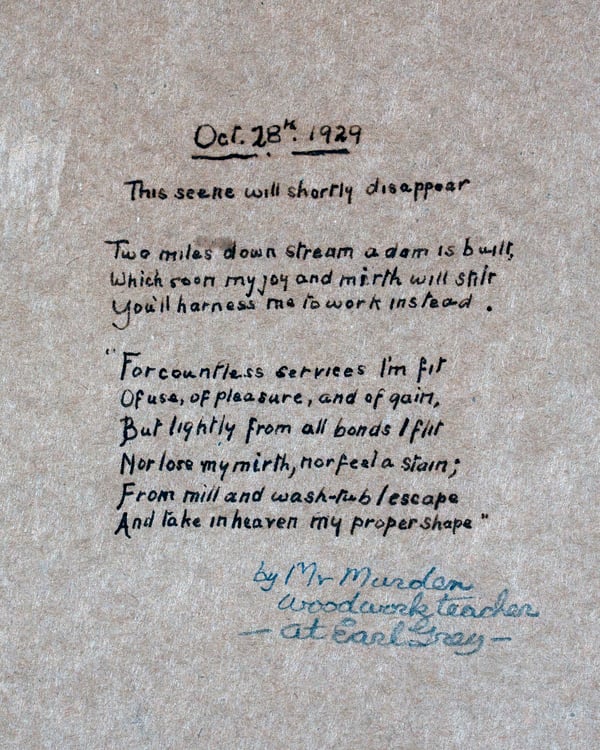 Oct. 28th. 1929
This scene will shortly disappear
Two miles down stream a dam is built,
Which soon my joy and mirth will stilt
You'll harness me to work instead.
"For countless services I'm fit
Of use, of pleasure, and of gain,
But lightly from all bonds I flit
Nor lose my mirth, nor feel a stain;
From mill and wash-tub I escape
And take in heaven my proper shape"
by Mr Murden
Woodwork teacher
- at Earl Grey -